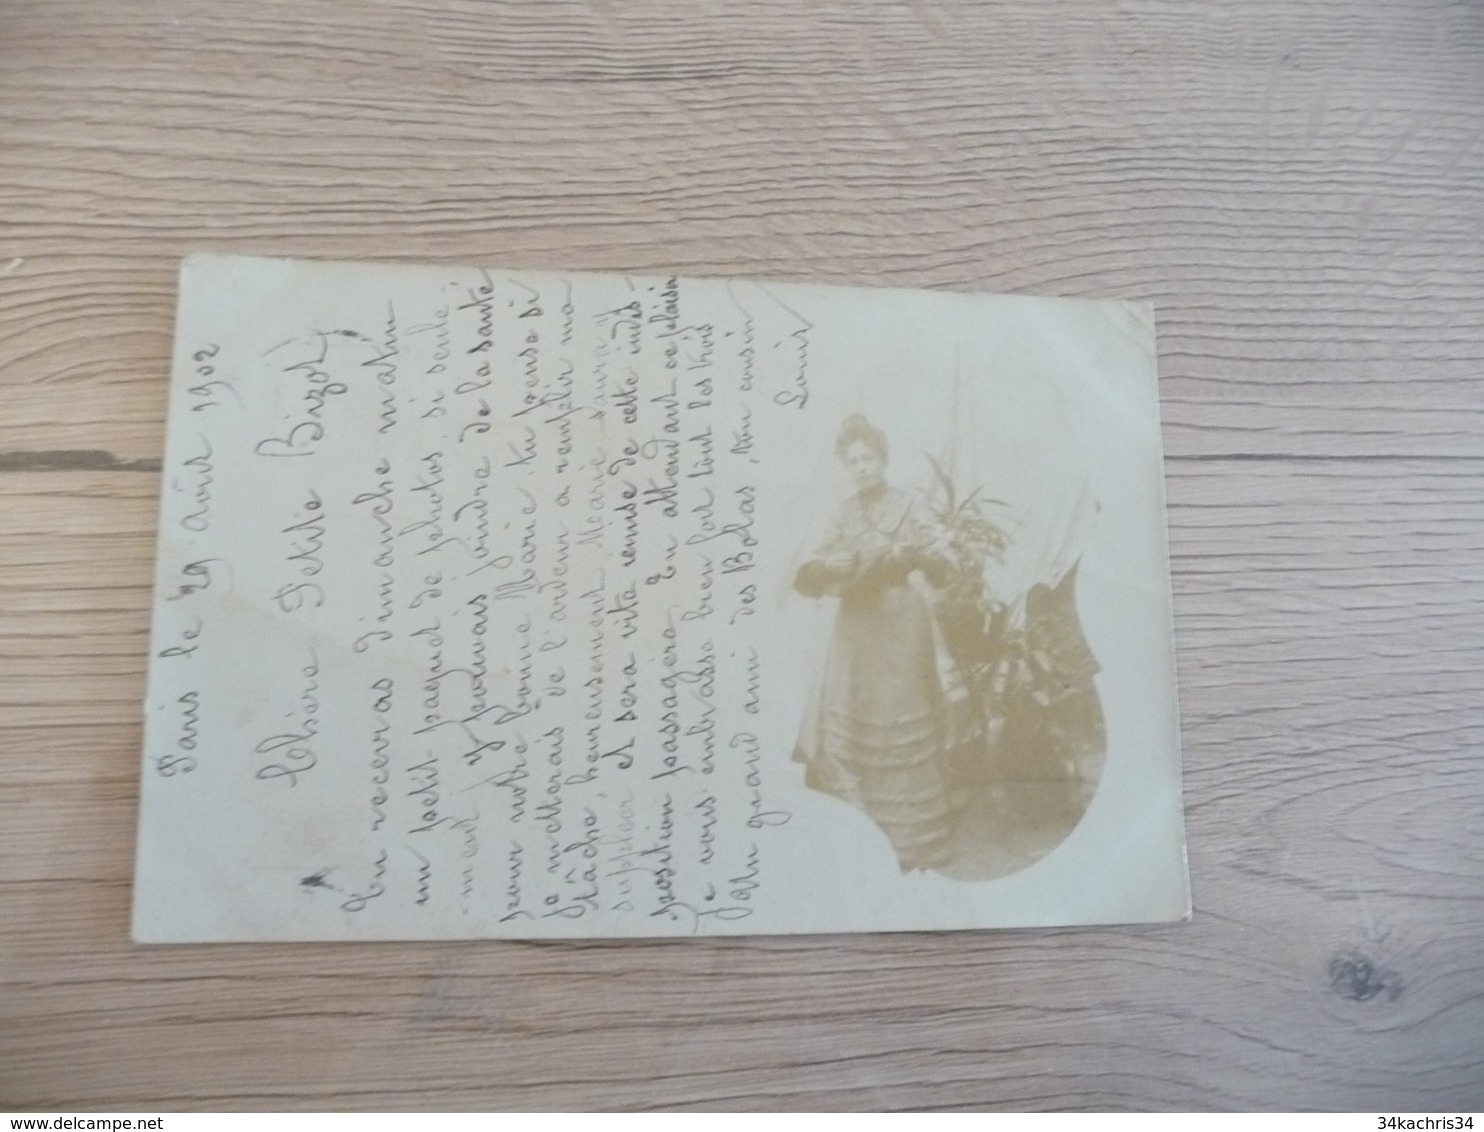 Paris le 29 août 1902
Chère Petite Bizot
Tu recevras dimanche matin
un petit paquet de photos, si seule-
-ment je pouvais joindre de la santé
pour notre bonne Marie, tu pense si
je metterais de l'ardeur a remplir ma
tâche, heureusement Marie saura y
suppléer et sera vite remise de cette indis-
position passagère, En attendant ce plaisir
je vous embrasse bien fort tout les trois
Un grand ami des Bolas, ton cousin
Louis
34kachris34